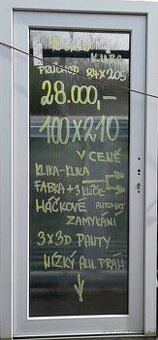 KLIKA
PRŮCHOD 84X205
28.000,-
100X210
V CENĚ
KLIKA-KLIKA
FABKA+3 KLÍČE
HÁČKOVÉ AUTOMAT
ZAMYKÁNÍ
3X3D PANTY
NÍZKÝ ALU. PRAH